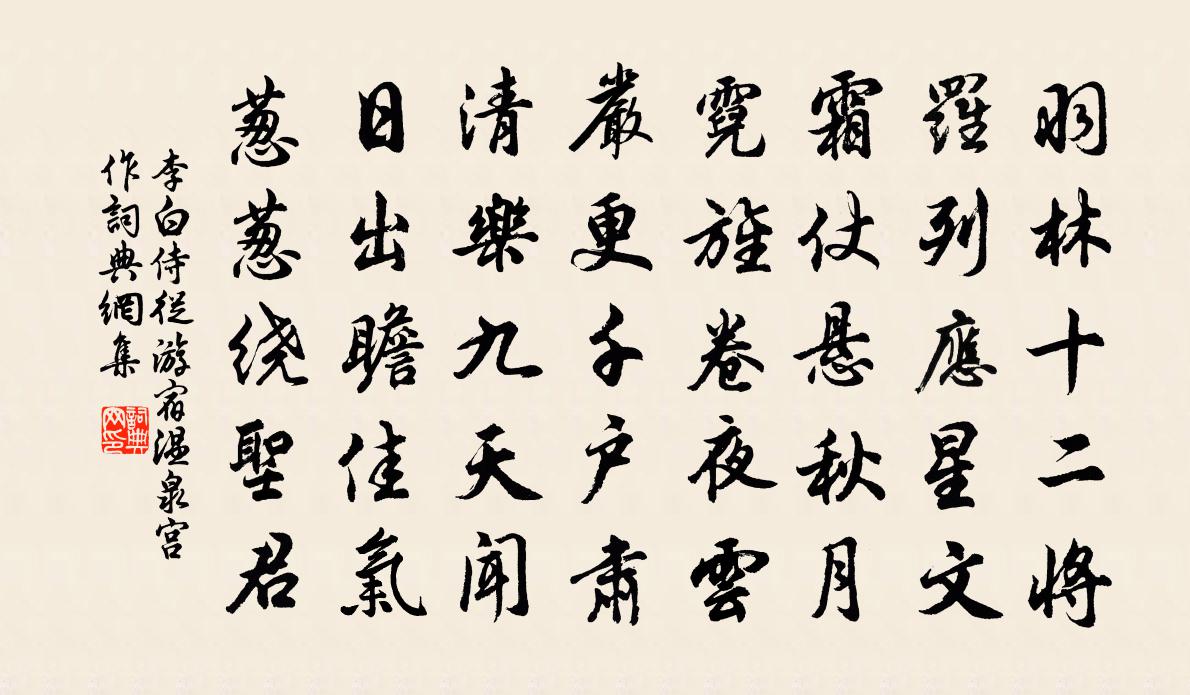 羽林十二將
羅列應星文
霜仗悬秋月
霓旌卷夜雲
嚴更千户肅
清樂九天聞
日出瞻佳氣
葱葱绕聖君
李白侍從游宿温泉宫
作詞典網集
詞典
网印